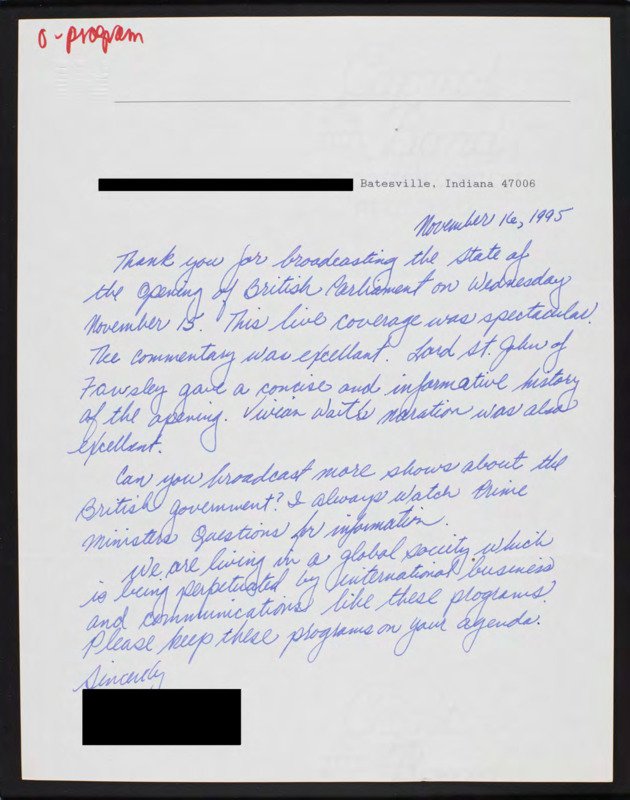 o-program
Batesville, Indiana 47006
November 16, 1995
Thank you for broadcasting the State of
the Opening of British Parliament on Wednesday
November 15. This live coverage was spectacular.
The commentary was excellent. Lord St. John of
Fawsley gave a concise and informative history
of the opening. Vivian Wait's naration was also
excellent.
Can you broadcast more shows about the
British government? I always watch Prime
Ministers Questions for information.
We are living in a global society which
is being perpetuated by international business
and communications like these programs.
Please keep these programs on your agenda.
Sincerely